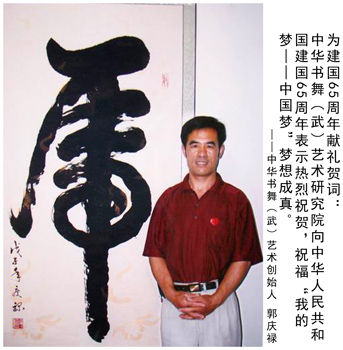 为建国65周年献礼贺词：
中华书舞（武）艺术研究院向中华人民共和
国建国65周年表示热烈祝贺，祝福“我的
梦——中国梦”梦想成真。
——中华书舞（武）艺术创始人 郭庆禄
虎
戊子年庆禄